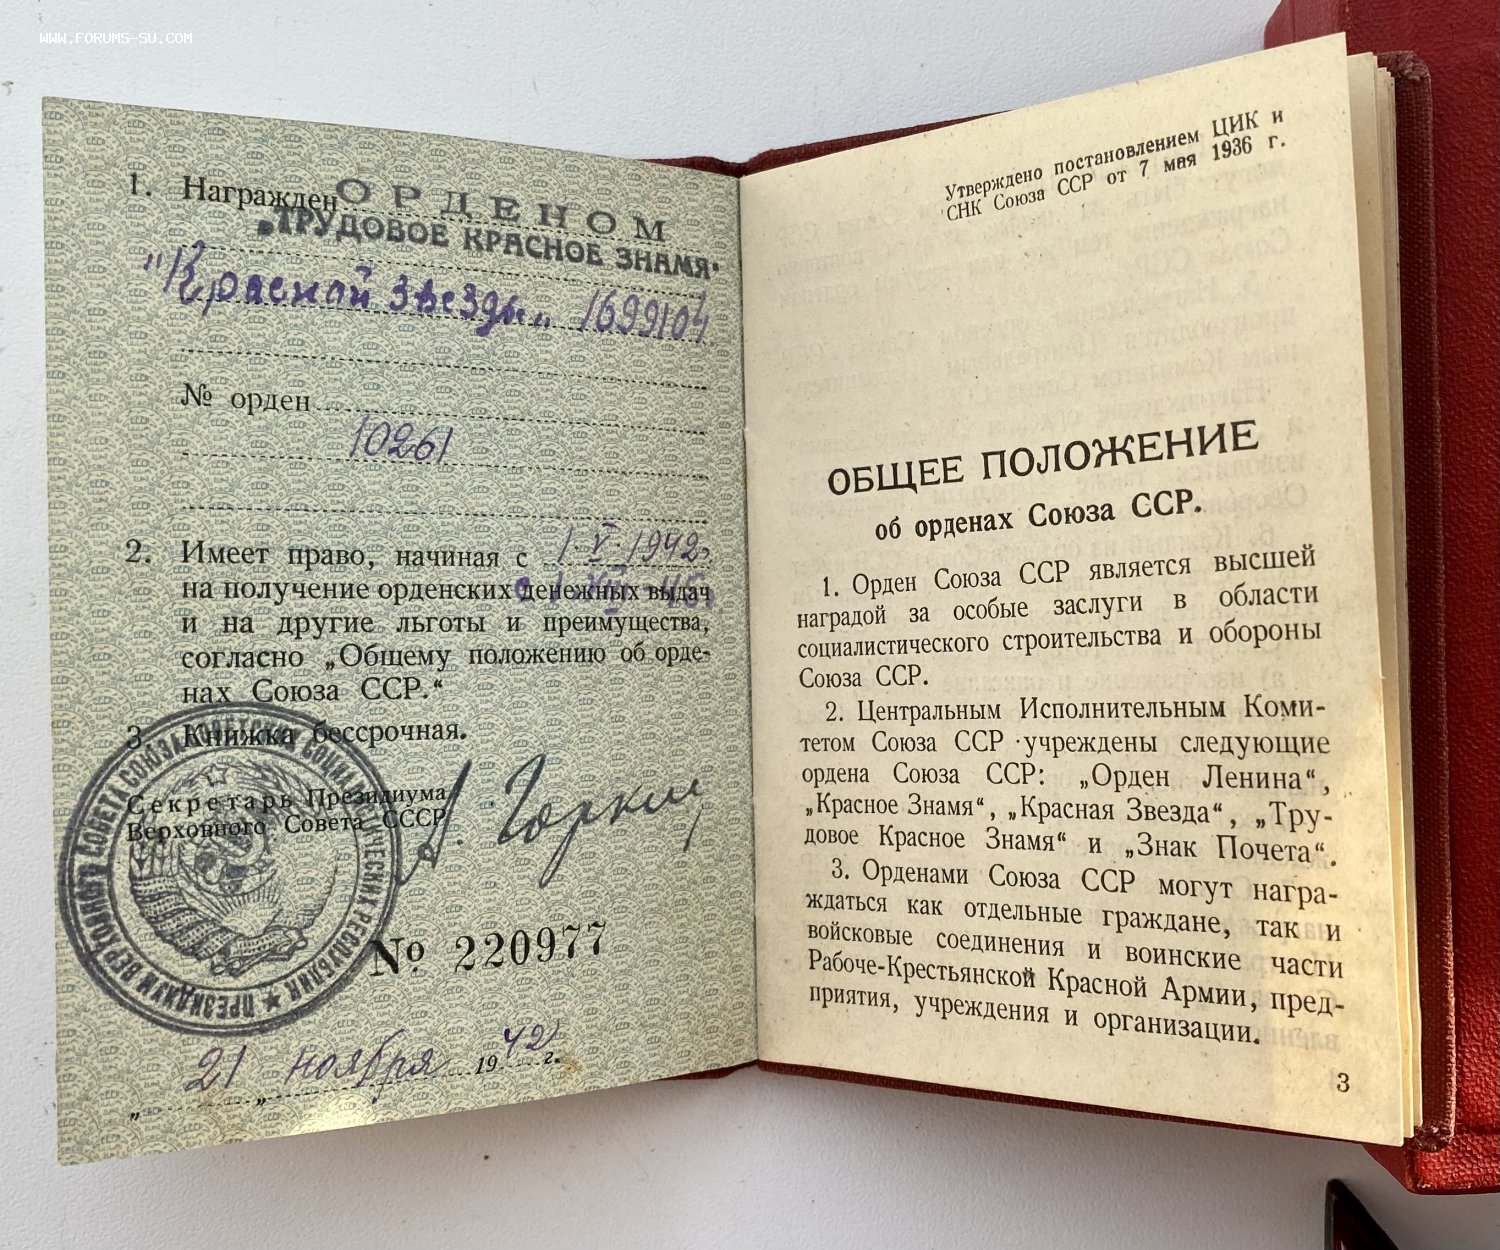 WWW.FORUMS-SU.COM
1. Награжден ОРДЕНОМ
„ТРУДОВОЕ КРАСНОЕ ЗНАМЯ“
"Красной Звезды" 1699104
№ орден
10261
2. Имеет право, начиная с 1.V.1942,
на получение орденских денежных выдач
и на другие льготы и преимущества,
согласно „Общему положению об орде-
нах Союза ССР.“
3. Книжка бессрочная.
Секретарь Президиума
Верховного Совета СССР
А. Горкин
ПРЕЗИДИУМ ВЕРХОВНОГО СОВЕТА СОЮЗА СОВЕТСКИХ СОЦИАЛИСТИЧЕСКИХ РЕСПУБЛИК
№ 220977
„21„ ноября 1942 г.
Утверждено постановлением ЦИК и
СНК Союза ССР от 7 мая 1936 г.
ОБЩЕЕ ПОЛОЖЕНИЕ
об орденах Союза ССР.
1. Орден Союза ССР является высшей
наградой за особые заслуги в области
социалистического строительства и обороны
Союза ССР.
2. Центральным Исполнительным Коми-
тетом Союза ССР учреждены следующие
ордена Союза ССР: „Орден Ленина“,
„Красное Знамя“, „Красная Звезда“, „Тру-
довое Красное Знамя“ и „Знак Почета“.
3. Орденами Союза ССР могут награ-
ждаться как отдельные граждане, так и
войсковые соединения и воинские части
Рабоче-Крестьянской Красной Армии, пред-
приятия, учреждения и организации.
3